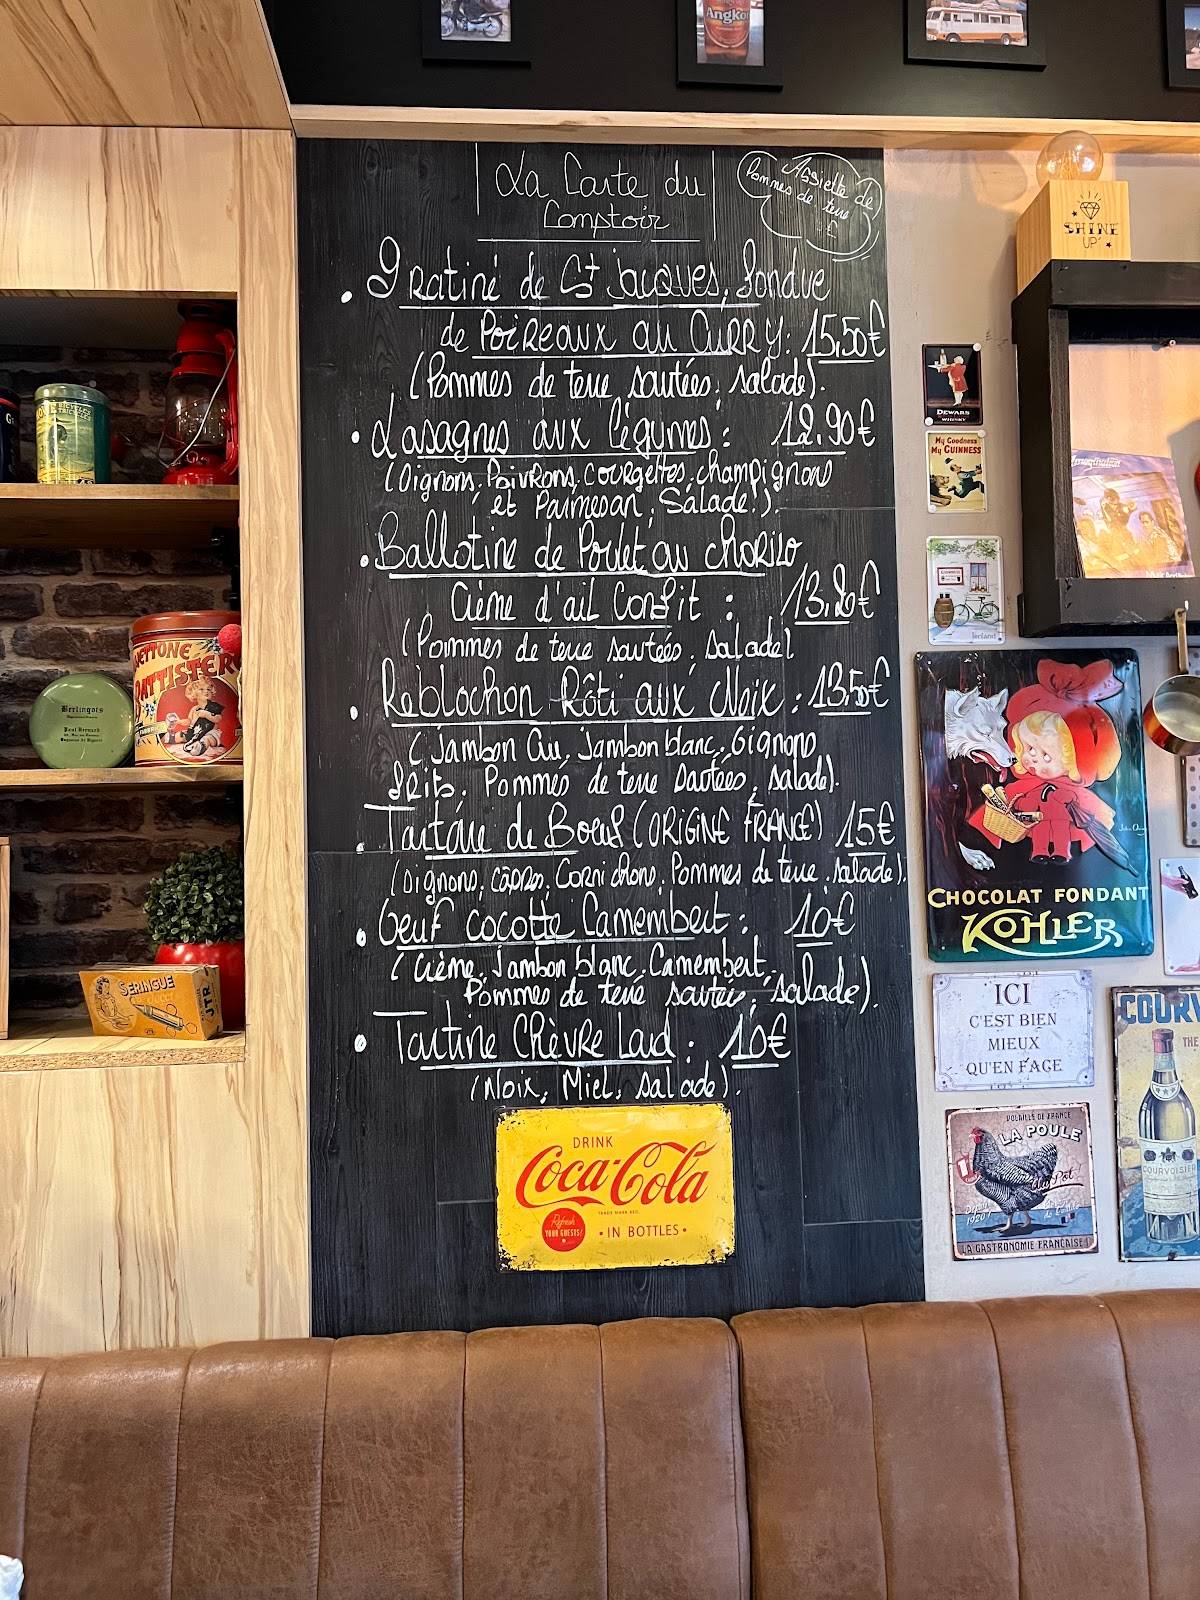 Angkor
La Carte du
Comptoir
Assiette de
Pommes de terre
€
• Gratiné de St Jacques, fondue
de Poireaux au CURRY: 15,50€
(Pommes de terre sautées, salade).
• Lasagnes aux légumes: 12,90€
(Oignons, Poivrons, courgettes, champignons
et Parmesan, Salade!).
• Ballotine de Poulet au chorizo
Crème d'ail Confit : 13,20€
(Pommes de terre sautées, salade)
• Reblochon Rôti aux Noix : 13,50€
(Jambon Cru, Jambon blanc, Oignons
Frits, Pommes de terre sautées, salade).
• Tartare de Boeuf (ORIGINE FRANCE) 15€
(Oignons, câpres, Cornichons, Pommes de terre, salade).
• Oeuf cocotte Camembert: 10€
(Crème, Jambon blanc, Camembert,
Pommes de terre sautées, salade).
• Tartine Chèvre Lard: 10€
(Noix, Miel, Salade).
DRINK
Coca-Cola
TRADE MARK REG.
Refresh
YOUR GUESTS!
• IN BOTTLES •
Berlingots
Paul Bernard
SERINGUE
JTR
SHINE
UP
DEWARS
WHISKY
My Goodness
My GUINNESS
Ireland
CHOCOLAT FONDANT
KOHLER
ICI
C'EST BIEN
MIEUX
QU'EN FACE
VOLAILLE DE FRANCE
LA POULE
Au Pot!
Depuis
1920
LA GASTRONOMIE FRANÇAISE!
COURV
THE
COURVOISIER